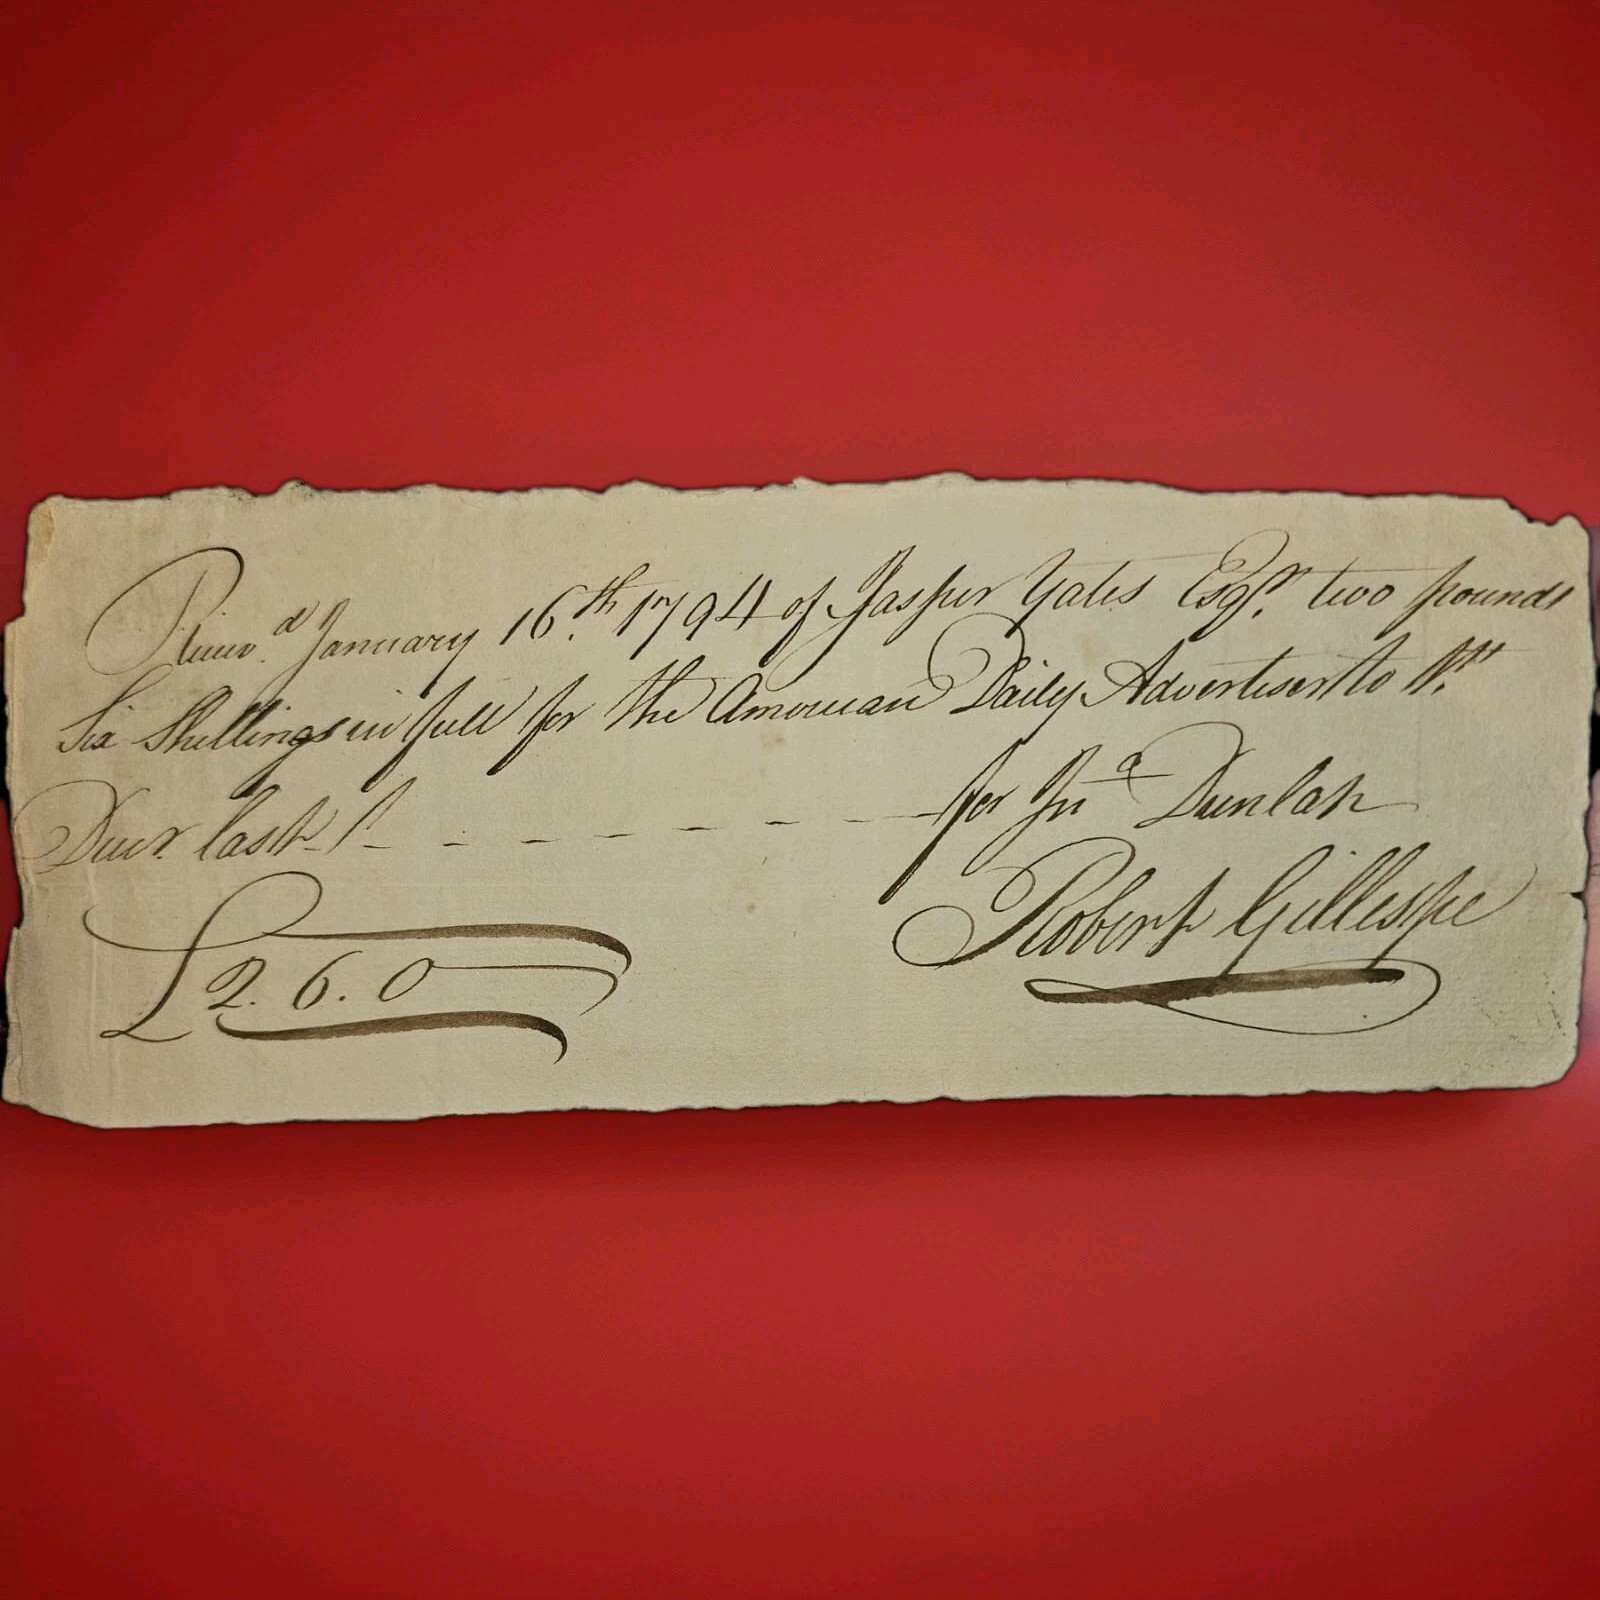 Receiv.d January 16.th 1794 of Jasper Yates Esqr. two pounds
Six Shillings in full for the American Daily Advertiser to
Decr. last
for Jno Dunlap
Robert Gillespie
£2.6.0